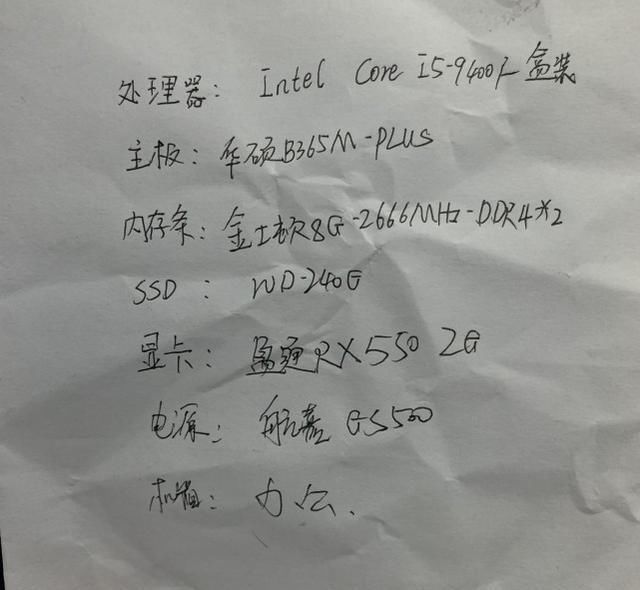 处理器: Intel Core i5-9400F 盒装
主板: 华硕B365M-PLUS
内存条: 金士顿8G-2666MHz-DDR4*2
SSD: WD-240G
显卡: 盈通RX550 2G
电源: 航嘉 GS500
机箱: 办公.